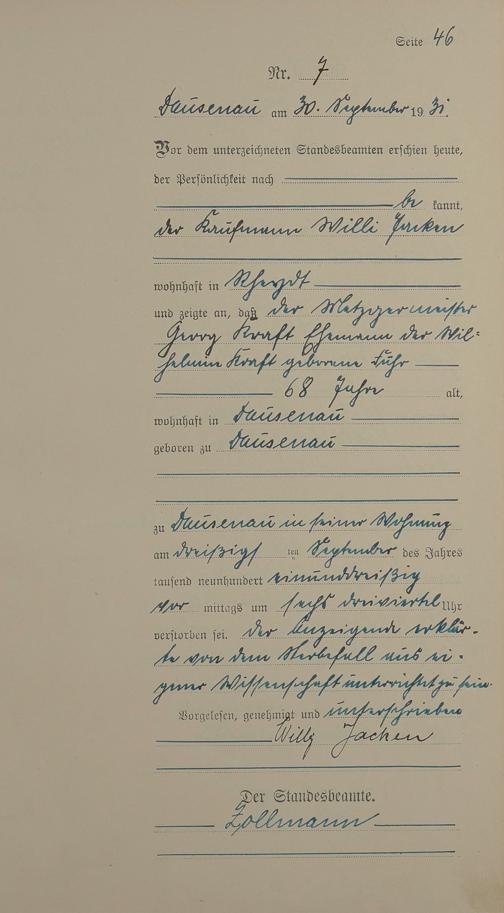 Seite 46
Nr. 7
Dausenau am 30. September 1931.
Vor dem unterzeichneten Standesbeamten erschien heute,
der Persönlichkeit nach
be kannt,
der Kaufmann Willi Jacken
wohnhaft in Rheydt
und zeigte an, daß der Metzgermeister
Georg Kraft Ehemann der Wil=
helmine Kraft geborene Fuhr
68 Jahre alt,
wohnhaft in Dausenau
geboren zu Dausenau
zu Dausenau in seiner Wohnung
am dreißigsten September des Jahres
tausend neunhundert einunddreißig
vor mittags um sechs dreiviertel Uhr
verstorben sei. Der Anzeigende erklär-
te von dem Sterbefall aus ei-
gener Wissenschaft unterrichtet zu sein.
Vorgelesen, genehmigt und unterschrieben
Willy Jacken
Der Standesbeamte.
Zollmann